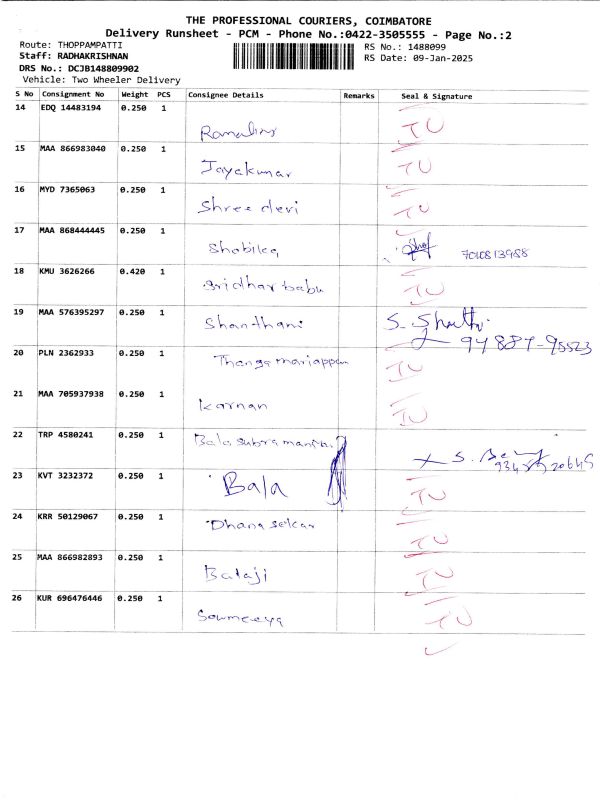 THE PROFESSIONAL COURIERS, COIMBATORE
Delivery Runsheet - PCM - Phone No.:0422-3505555 - Page No.:2
Route: THOPPAMPATTI RS No.: 1488099
Staff: RADHAKRISHNAN RS Date: 09-Jan-2025
DRS No.: DCJB148809902
Vehicle: Two Wheeler Delivery
S No Consignment No Weight PCS Consignee Details Remarks Seal & Signature
14 EDQ 14483194 0.250 1 IU
15 MAA 866983040 0.250 1 Jayakumar IU
16 MYD 7365063 0.250 1 Shree devi IU
17 MAA 868444445 0.250 1 7010813988
18 KMU 3626266 0.420 1 Sridhar babu IU
19 MAA 576395297 0.250 1 Shanthani S. 94887-95523
20 PLN 2362933 0.250 1 Thanga mariappan IU
21 MAA 705937938 0.250 1 Karnan IU
22 TRP 4580241 0.250 1 Bala subramania S.
23 KVT 3232372 0.250 1 Bala IU
24 KRR 50129067 0.250 1 Dhana sekar IU
25 MAA 866982893 0.250 1 Balaji IU
26 KUR 696476446 0.250 1 Sowmeeya IU